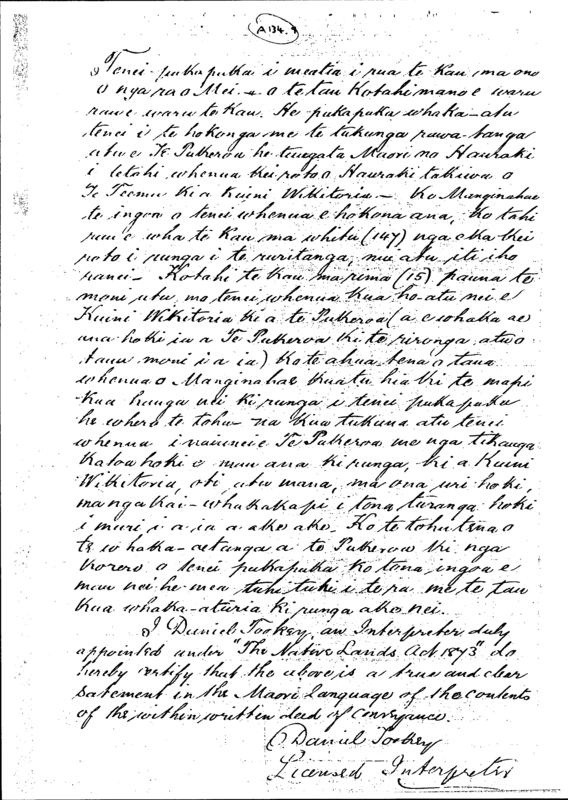 A134.9
Tenei pukapuka i meatia i rua te kau ma ono
o nga ra o Mei - o te tau Kotahi mano e waru
rau e waru te Kau. He pukapuka whaka-atu
tenei i te hokonga me te tukunga rawa-tanga
atu e Te Pukeroa he tangata Maori no Hauraki
i tetahi whenua kei roto o Hauraki takiwa o
Te Teemu ki a Kuini Wikitoria - Ko Manginahae
te ingoa o tenei whenua e hokona ana, Ko tahi
rau e wha te Kau ma whitu (147) nga eka Kei
roto i runga i te ruritanga, nui atu iti iho
ranei - Kotahi te Kau ma rima (15) pauna te
moni utu mo tenei whenua Kua ho-atu nei e
Kuini Wikitoria ki a te Pukeroa (a e whaka ae
ana hoki ia a Te Pukeroa ki te rironga atu o
taua moni i a ia) Ko te ahua tena o taua
whenua o Manginahae Kua tu hia ki te mapi
Kua hanga nei ki runga i tenei pukapuka
he whero te tohu - na Kua tukuna atu tenei
whenua inaianei e Te Pukeroa me nga tikanga
Katoa hoki e mau ana ki runga, ki a Kuini
Wikitoria, oti atu mana, ma ona uri hoki,
ma nga Kai-whakakapi i tona turanga hoki
i muri i a ia a ake ake. Ko te tohu tena o
te whaka-aetanga a te Pukeroa ki nga
korero o tenei pukapuka ko tona ingoa e
mau nei he mea tuhi tuhi i te ra me te tau
Kua whaka-aturia ki runga ake nei.
I Daniel Tookey an Interpreter duly
appointed under "The Native Lands Act 1873" do
hereby certify that the above is a true and clear
satement in the Maori Language of the contents
of the within written deed of conveyance.
Daniel Tookey
Licensed Interpreter